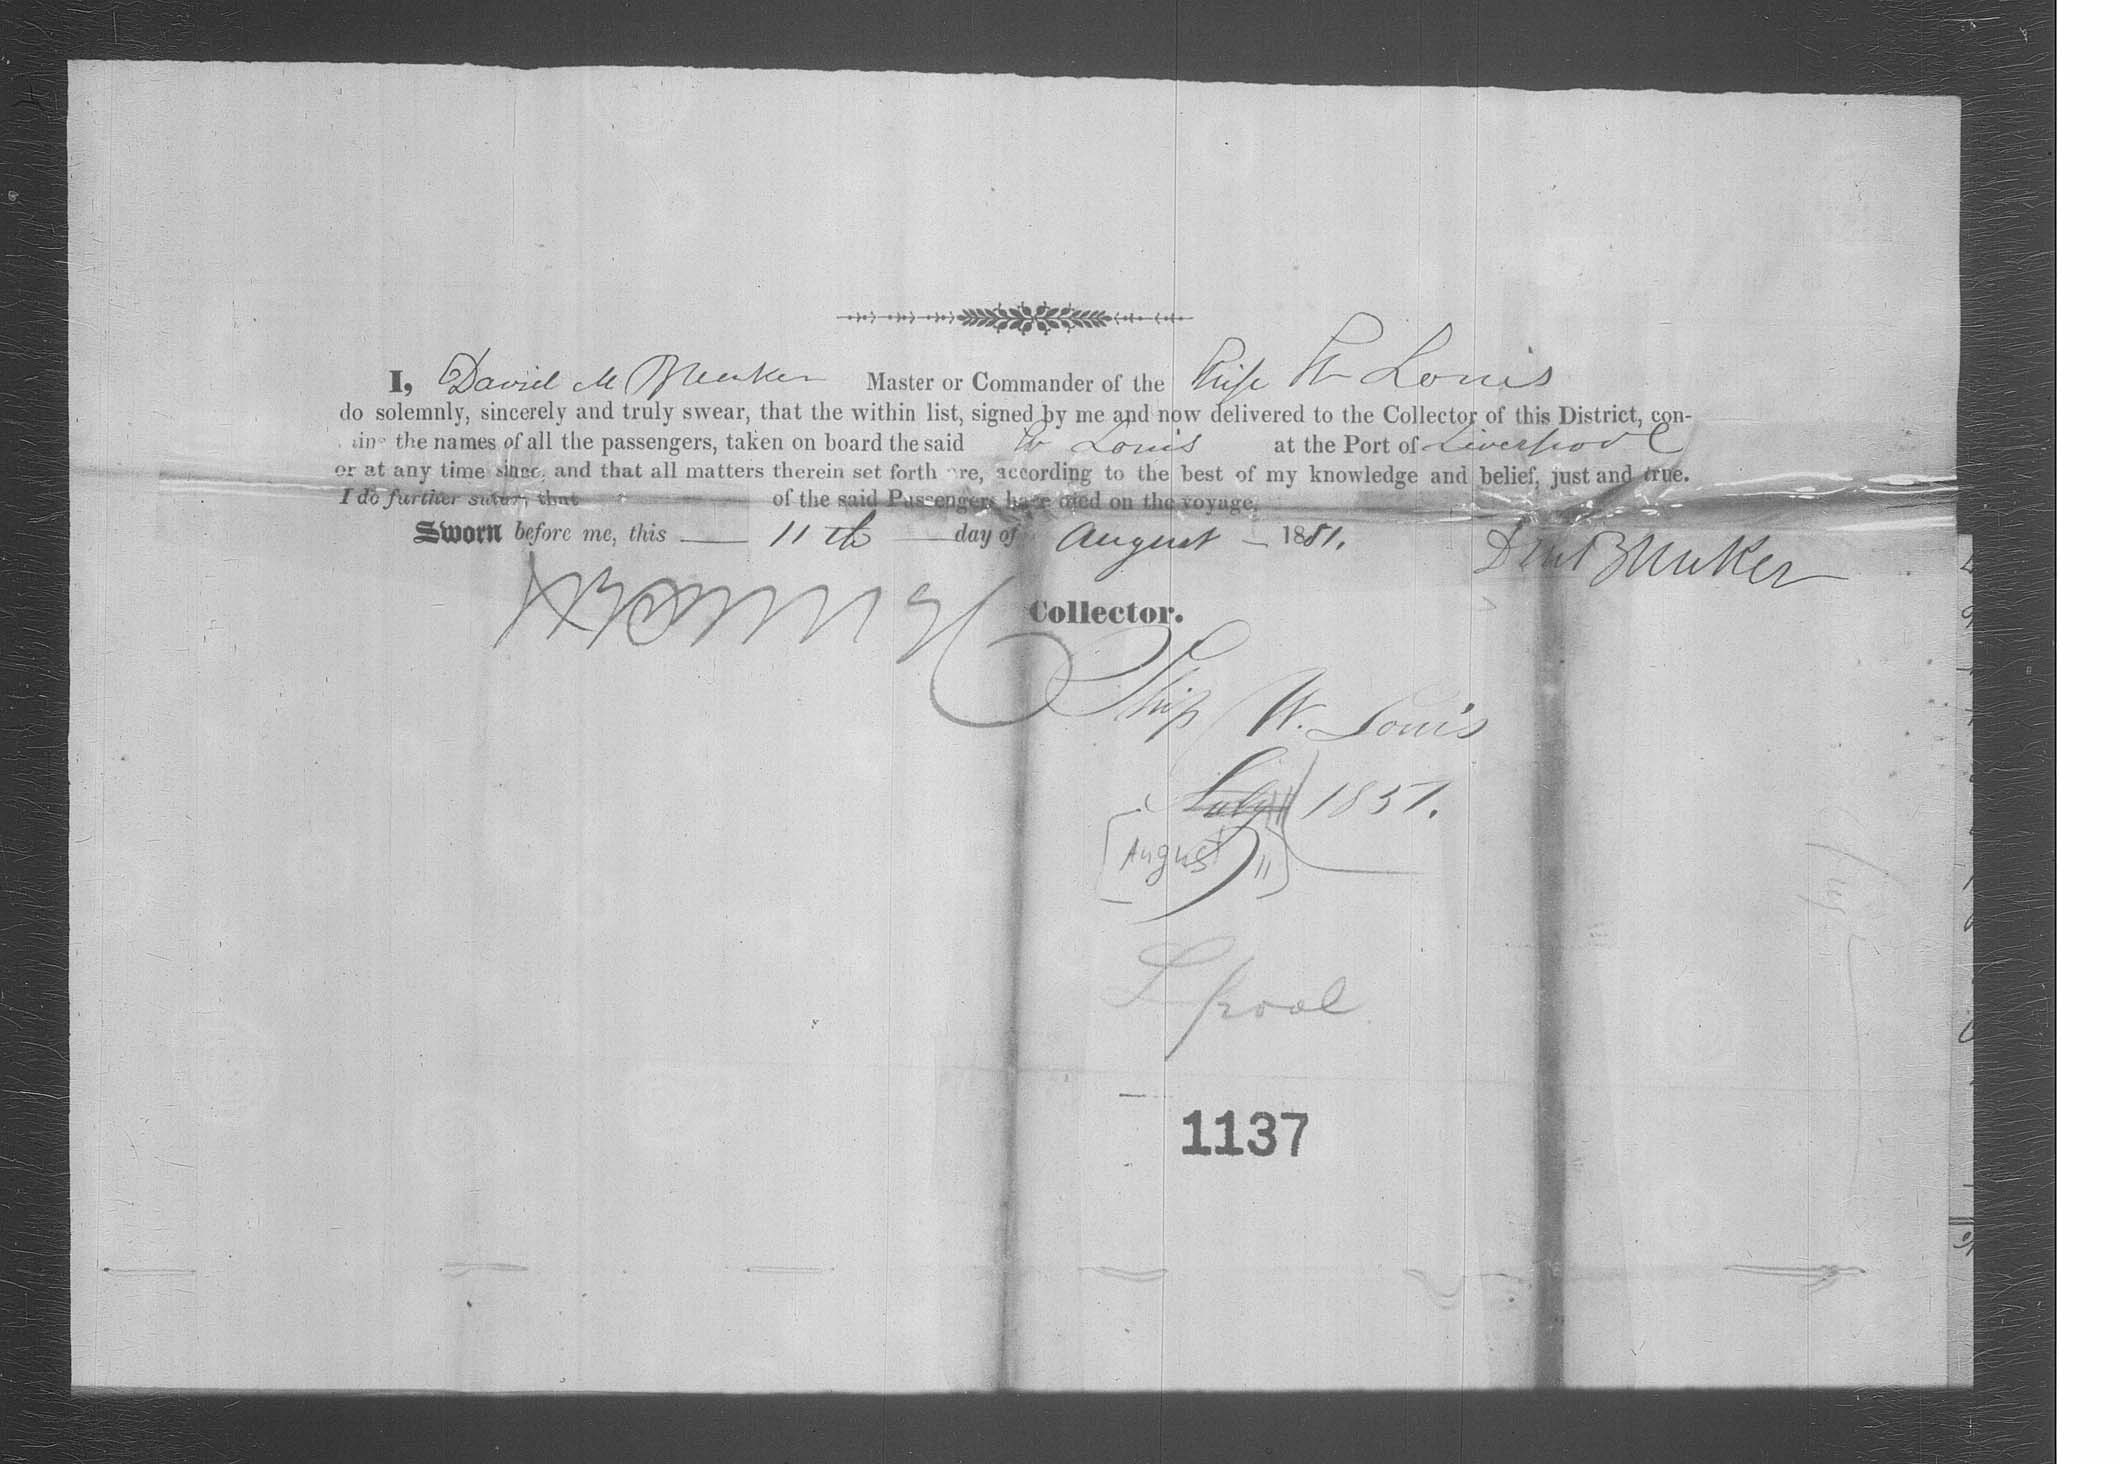 I, David M Bunker Master or Commander of the Ship St Louis
do solemnly, sincerely and truly swear, that the within list, signed by me and now delivered to the Collector of this District, con-
the names of all the passengers, taken on board the said St Louis at the Port of Liverpool
or at any time since, and that all matters therein set forth are, according to the best of my knowledge and belief, just and true.
I do further swear, that of the said Passengers have died on the voyage.
Sworn before me, this 11th day of August 1851.
Bunker
Collector.
Ship St. Louis
July 11 1851.
[August 11]
L pool
1137